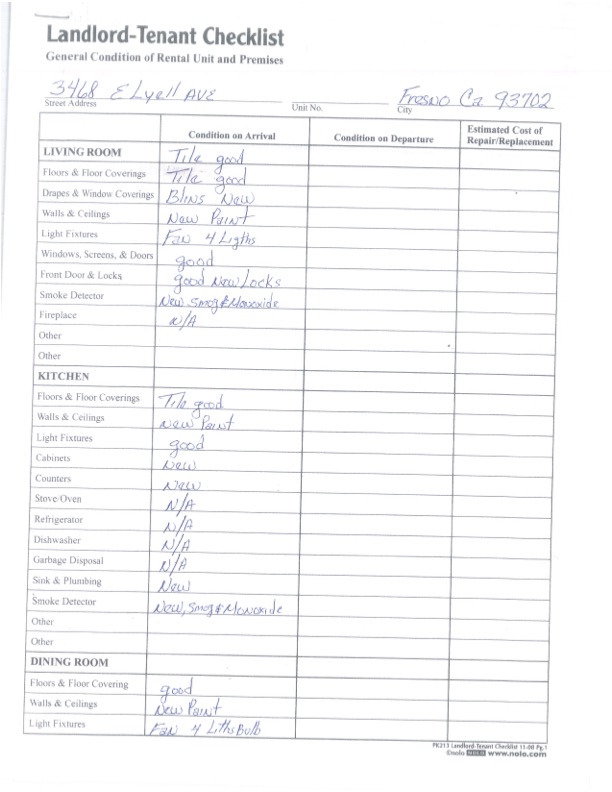 Landlord-Tenant Checklist
General Condition of Rental Unit and Premises
3468 E Lyell AVE Fresno Ca 93702
Street Address Unit No. City
Condition on Arrival Condition on Departure Estimated Cost of Repair/Replacement
LIVING ROOM Tile good
Floors & Floor Coverings Tile good
Drapes & Window Coverings Blins New
Walls & Ceilings New Paint
Light Fixtures Fan 4 Ligths
Windows, Screens, & Doors good
Front Door & Locks good New Locks
Smoke Detector New Smog & Monoxide
Fireplace N/A
Other
Other
KITCHEN
Floors & Floor Coverings Tile good
Walls & Ceilings New Paint
Light Fixtures good
Cabinets New
Counters New
Stove/Oven N/A
Refrigerator N/A
Dishwasher N/A
Garbage Disposal N/A
Sink & Plumbing New
Smoke Detector New, Smog & Monoxide
Other
Other
DINING ROOM
Floors & Floor Covering good
Walls & Ceilings New Paint
Light Fixtures Fan 4 Liths Bulb
PK213 Landlord-Tenant Checklist 11-08 Pg.1
©nolo NOLO www.nolo.com